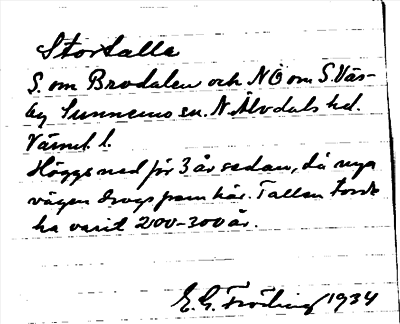 Stortalle
S. om Brodalen och NÖ om S. Väs-
by Sunnemo sn. N. Älvdals hd.
Värml. l.
Höggs ned för 3 år sedan, då nya
vägen drogs fram här. Tallen torde
ha varit 200-300 år.
E. G. Fröding 1934